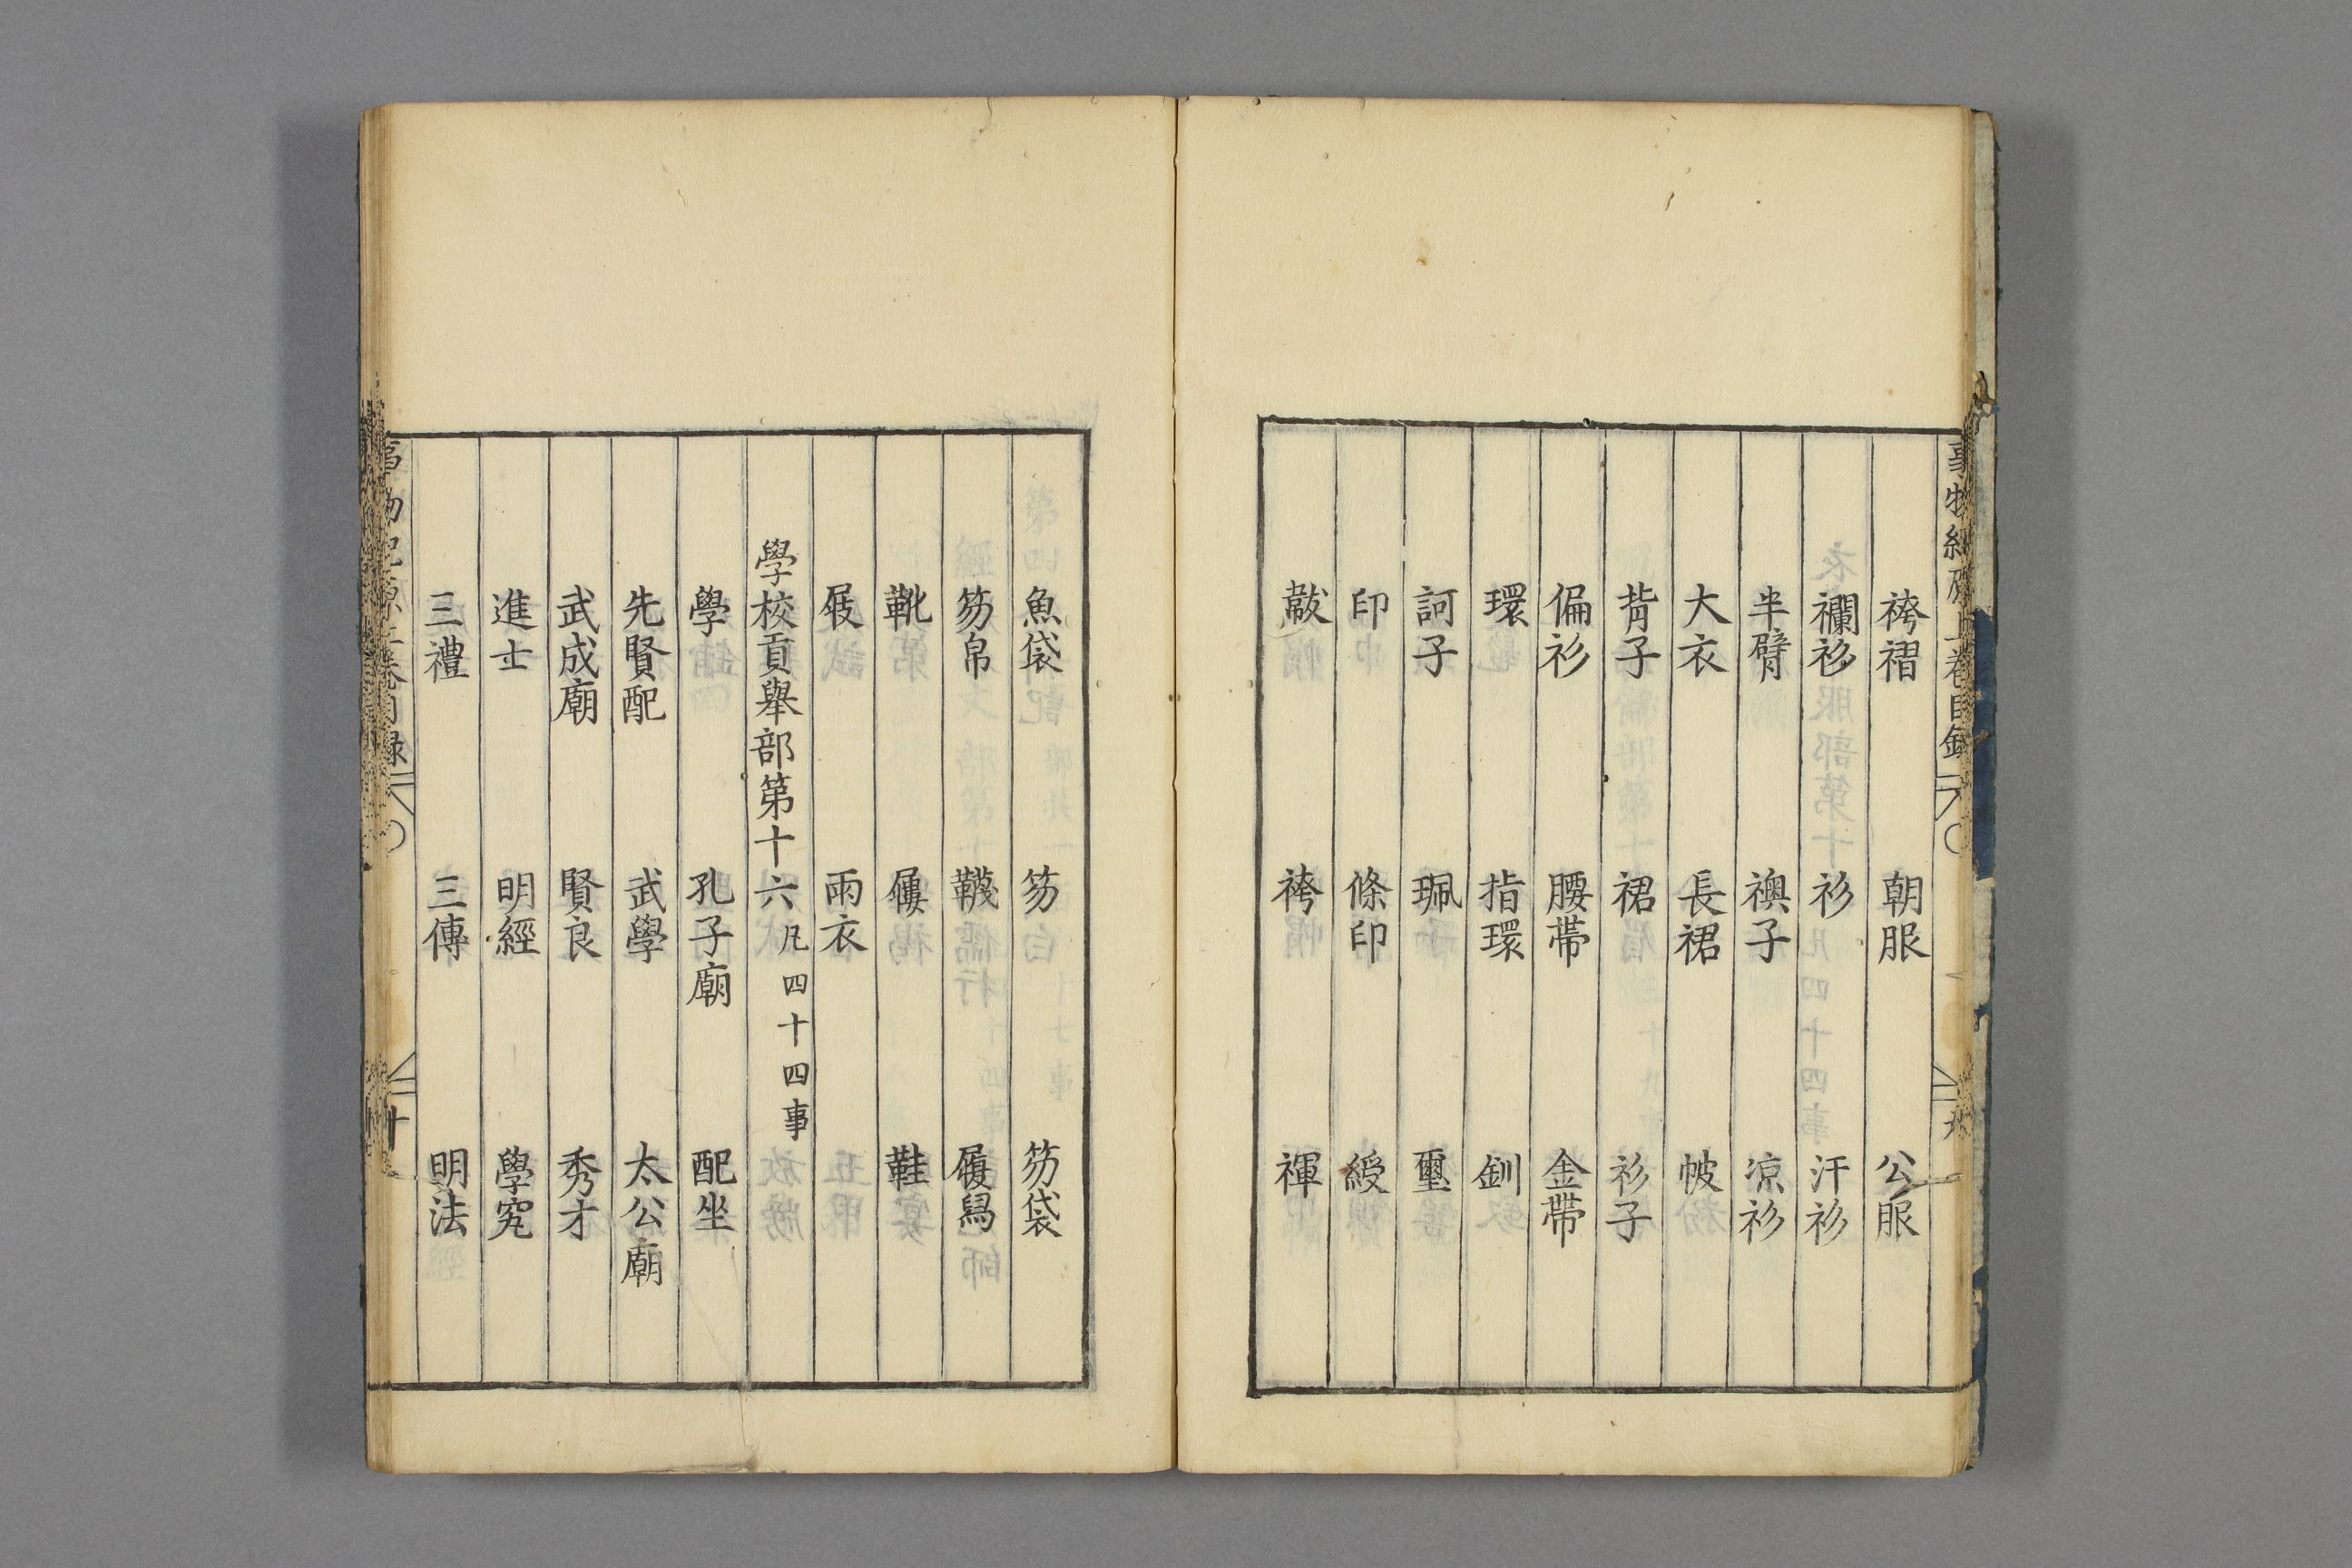 事物紀原上卷目錄 九
袴褶 朝服 公服
襴衫 衫 汗衫
半臂 襖子 凉衫
大衣 長裙 帔
背子 裙 衫子
偏衫 腰帶 金帶
環 指環 釧
訶子 珮 璽
印 條印 綬
韍 袴 褌
魚袋 笏 笏袋
笏帛 韈 履舄
靴 屨 鞋
屐 雨衣
學校貢舉部第十六 凡四十四事
學 孔子廟 配坐
先賢配 武學 太公廟
武成廟 賢良 秀才
進士 明經 學究
三禮 三傳 明法
事物紀原上卷目録 十